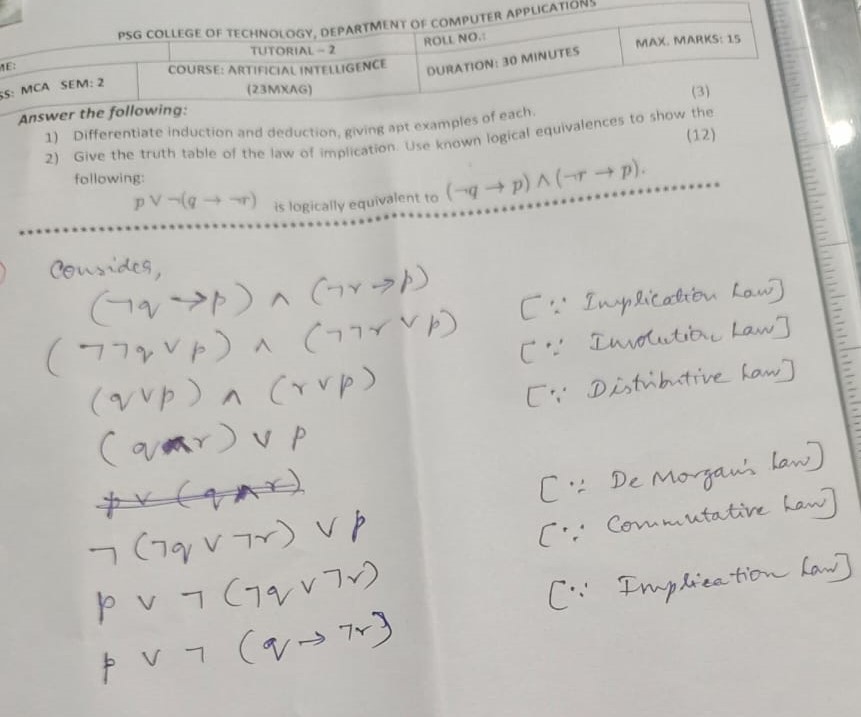 PSG COLLEGE OF TECHNOLOGY, DEPARTMENT OF COMPUTER APPLICATIONS
TUTORIAL – 2
ROLL NO.:
ME:
COURSE: ARTIFICIAL INTELLIGENCE
(23MXAG)
DURATION: 30 MINUTES
MAX. MARKS: 15
SS: MCA SEM: 2
Answer the following:
1) Differentiate induction and deduction, giving apt examples of each. (3)
2) Give the truth table of the law of implication. Use known logical equivalences to show the
following: (12)
p ∨ ¬(q → ¬r) is logically equivalent to (¬q → p) ∧ (¬r → p).
Consider,
(¬q → p) ∧ (¬r → p)
(¬¬q ∨ p) ∧ (¬¬r ∨ p) [∵ Implication Law]
(q ∨ p) ∧ (r ∨ p) [∵ Involution Law]
(q ∧ r) ∨ p [∵ Distributive Law]
p ∨ (q ∧ r)
¬(¬q ∨ ¬r) ∨ p [∵ De Morgan's Law]
p ∨ ¬(¬q ∨ ¬r) [∵ Commutative Law]
p ∨ ¬(q → ¬r) [∵ Implication Law]